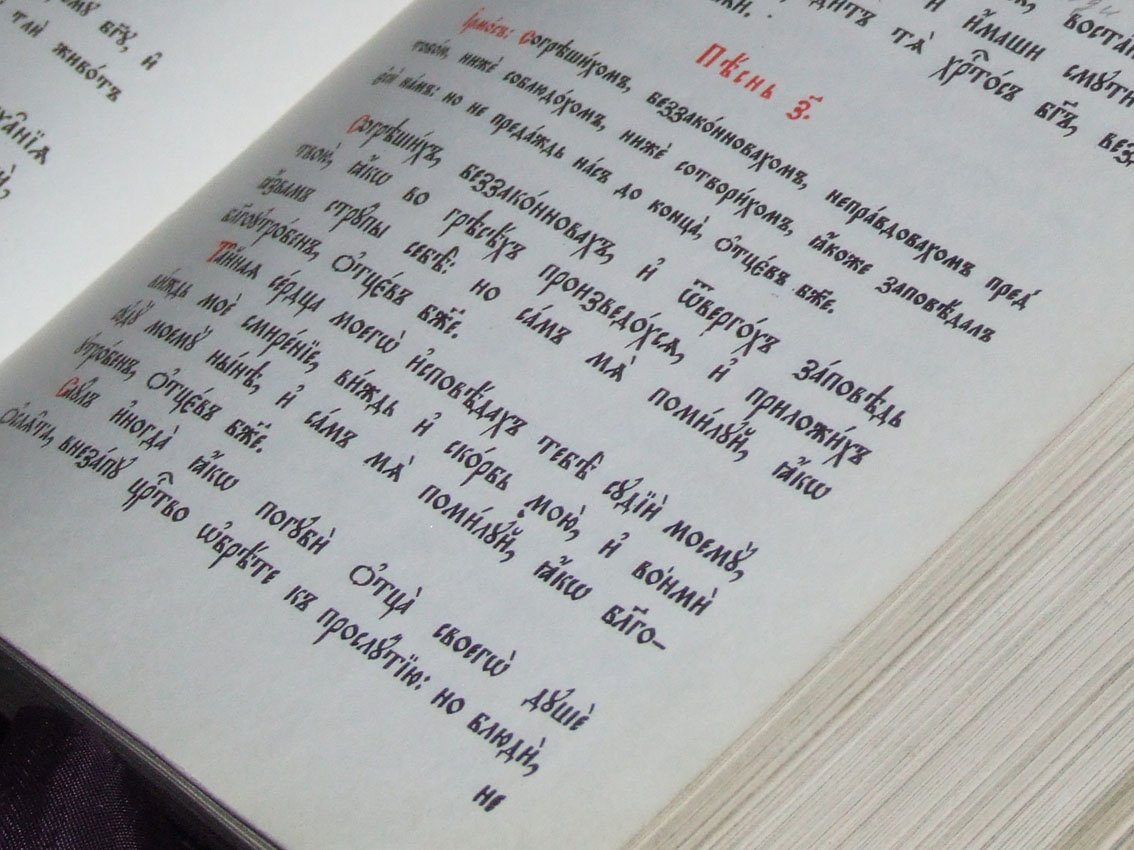 ому̀ бг҃у, и҆
тлѝ живо́тъ
ха̑нїѧ
дитъ тѧ̀ хрⷭ҇то́съ бг҃ъ, без
и҆ и҆́маши смути
воста
Пѣ́снь з҃.
І҆рмо́съ: Согрѣши́хомъ, беззако́нновахомъ, непра́вдовахомъ пред̾
тобо́ю, нижѐ соблюдо́хомъ, нижѐ сотвори́хомъ, ꙗ҆́коже заповѣ́далъ
є҆сѝ на́мъ: но не преда́ждь на́съ до конца̀, ѻ҆тцє́въ бж҃е.
Согрѣши́хъ, беззако́нновахъ, и҆ ѿверго́хъ за́повѣдь
твою̀, ꙗ҆́кѡ во грѣсѣ́хъ произведо́хсѧ, и҆ приложи́хъ
ꙗ҆́звамъ стру́пы себѣ̀: но са́мъ мѧ̀ поми́лꙋй, ꙗ҆́кѡ
бл҃гоꙋтро́бенъ, ѻ҆тцє́въ бж҃е.
Та̑йнаѧ се́рдца моегѡ̀ и҆сповѣ́дахъ тебѣ̀ сꙋдїѝ моемꙋ̀,
ви́ждь моѐ смире́нїе, ви́ждь и҆ ско́рбь мою̀, и҆ вонмѝ
сꙋдꙋ̀ моемꙋ̀ ны́нѣ, и҆ са́мъ мѧ̀ поми́лꙋй, ꙗ҆́кѡ бл҃го-
ꙋтро́бенъ, ѻ҆тцє́въ бж҃е.
Саꙋ́лъ и҆ногда̀ ꙗ҆́кѡ погꙋбѝ ѻ҆тца̀ своегѡ̀ дꙋшѐ
ѻ҆слѧ́ти, внеза́пꙋ црⷭ҇тво ѡ҆брѣ́те къ прослꙋ́тїю: но блюдѝ,
не